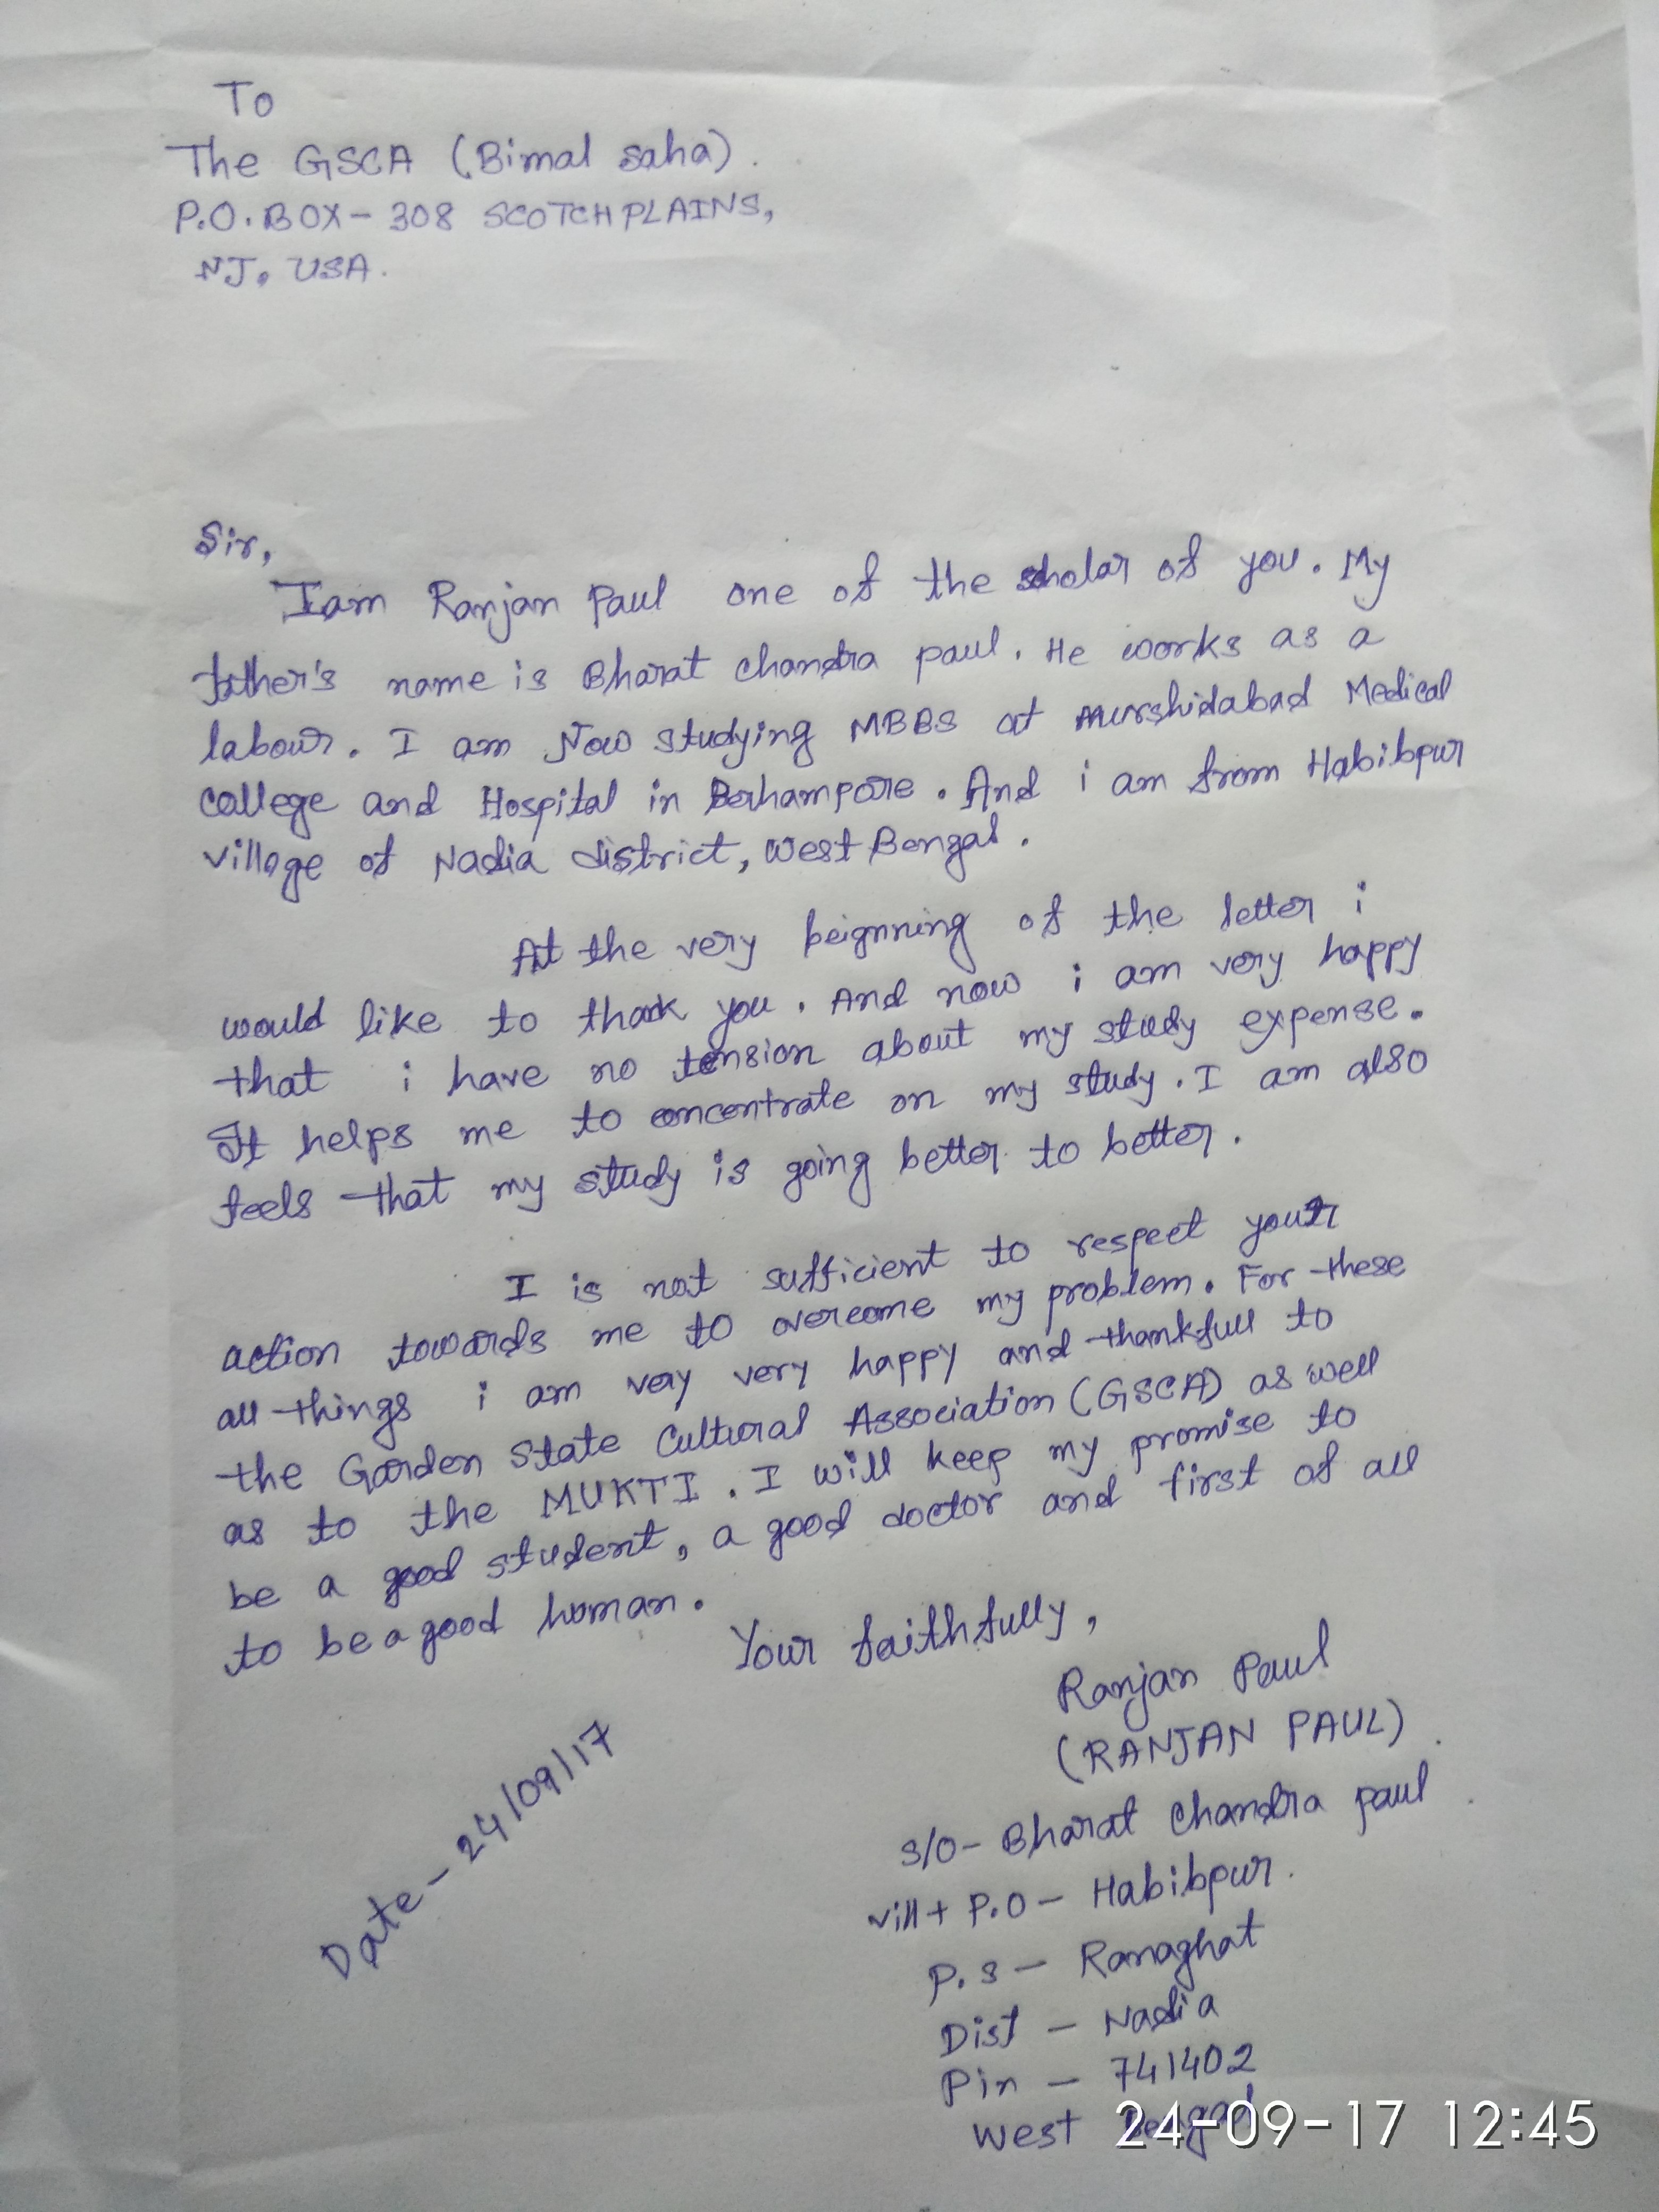 To
The GSCA (Bimal saha).
P.O. BOX- 308 SCOTCHPLAINS,
NJ, USA.
Sir,
I am Ranjan Paul one of the scholar of you. My
father's name is Bharat chandra paul. He works as a
labour. I am Now studying MBBS at Murshidabad Medical
college and Hospital in Berhampore. And i am from Habibpur
village of Nadia district, West Bengal.
At the very beignning of the letter i
would like to thank you. And now i am very happy
that i have no tension about my study expense.
It helps me to concentrate on my study. I am also
feels that my study is going better to better.
I is not sufficient to respect your
action towards me to overcome my problem. For these
all things i am very very happy and thankfull to
the Garden State Cultural Association (GSCA) as well
as to the MUKTI. I will keep my promise to
be a good student, a good doctor and first of all
to be a good human.
Your faithfully,
Ranjan Paul
(RANJAN PAUL).
S/O- Bharat Chandra paul.
vill + P.O - Habibpur.
P.S - Ranaghat
Dist - Nadia
Pin - 741402
West Bengal
Date - 24/09/17
24-09-17 12:45